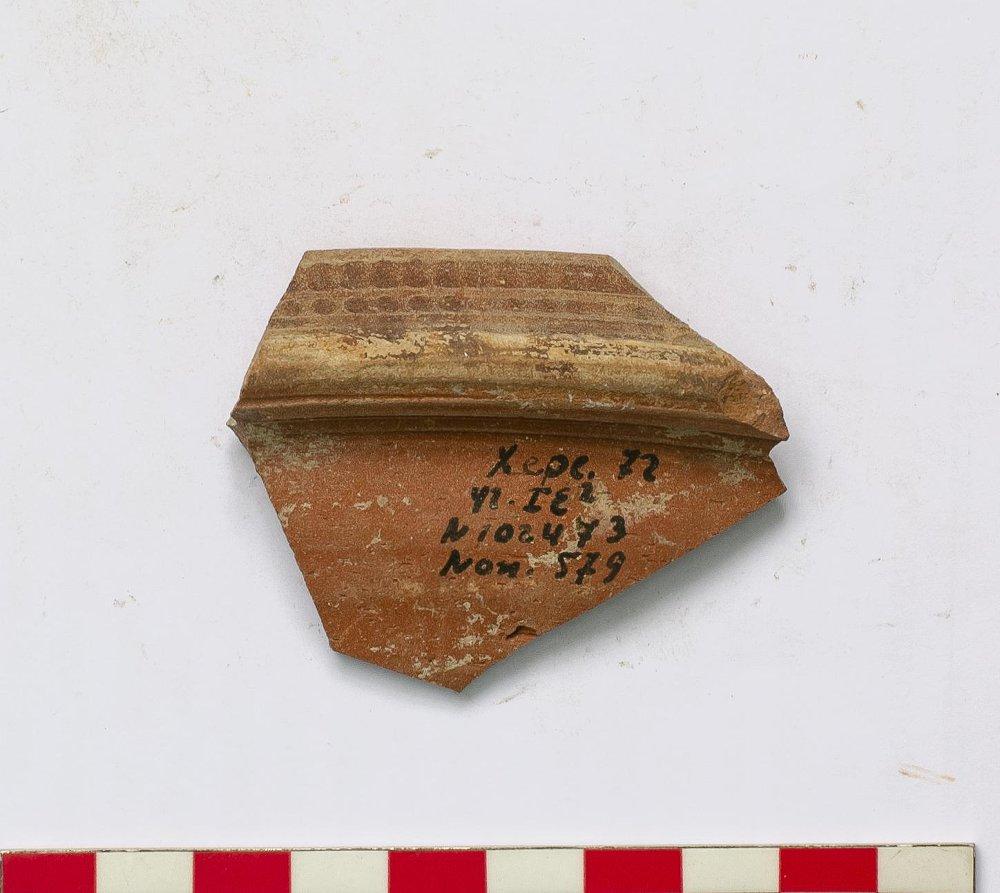 Херс. 72
уг. IE²
N 102473
Пол. 579